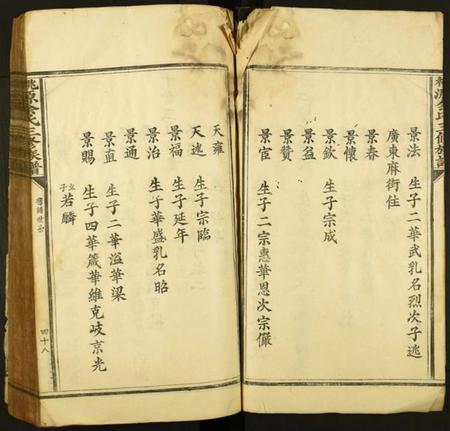 景法　生子二華武乳名烈次子逃
廣東麻街住
景春
景懷
景欽　生子宗成
景益
景贊
景官　生子二宗惠華恩次宗儼
天雍
天速　生子宗臨
景福　生子延年
景治　生子華盛乳名昭
景通
景直　生子二華溢華梁
景賜　生子四華箴華維克岐京光
立子若麟
四十八